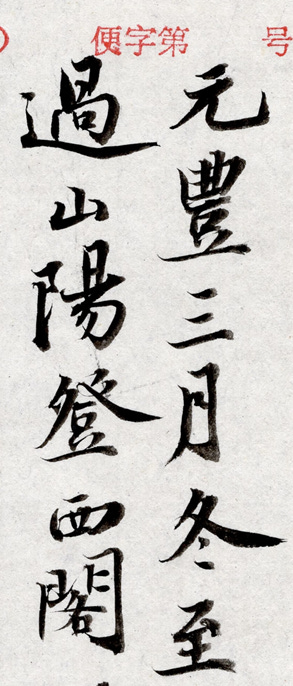 便字第 号
元豐三月冬至
過山陽登西閣